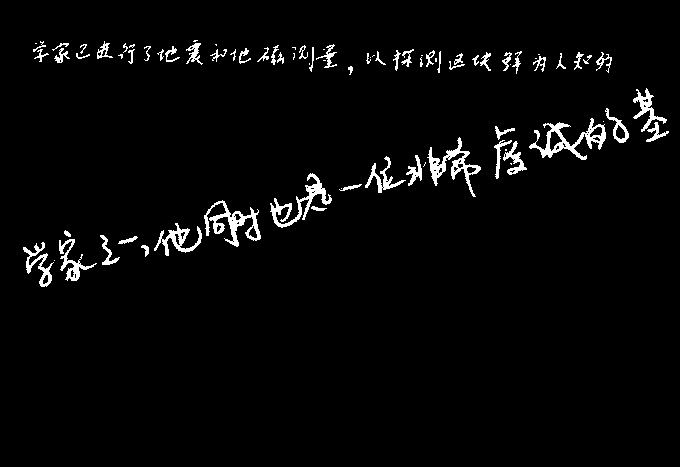 学家已进行了地震和地磁测量，以探测这块鲜为人知的
学家之一，他同时也是一位非常虔诚的基